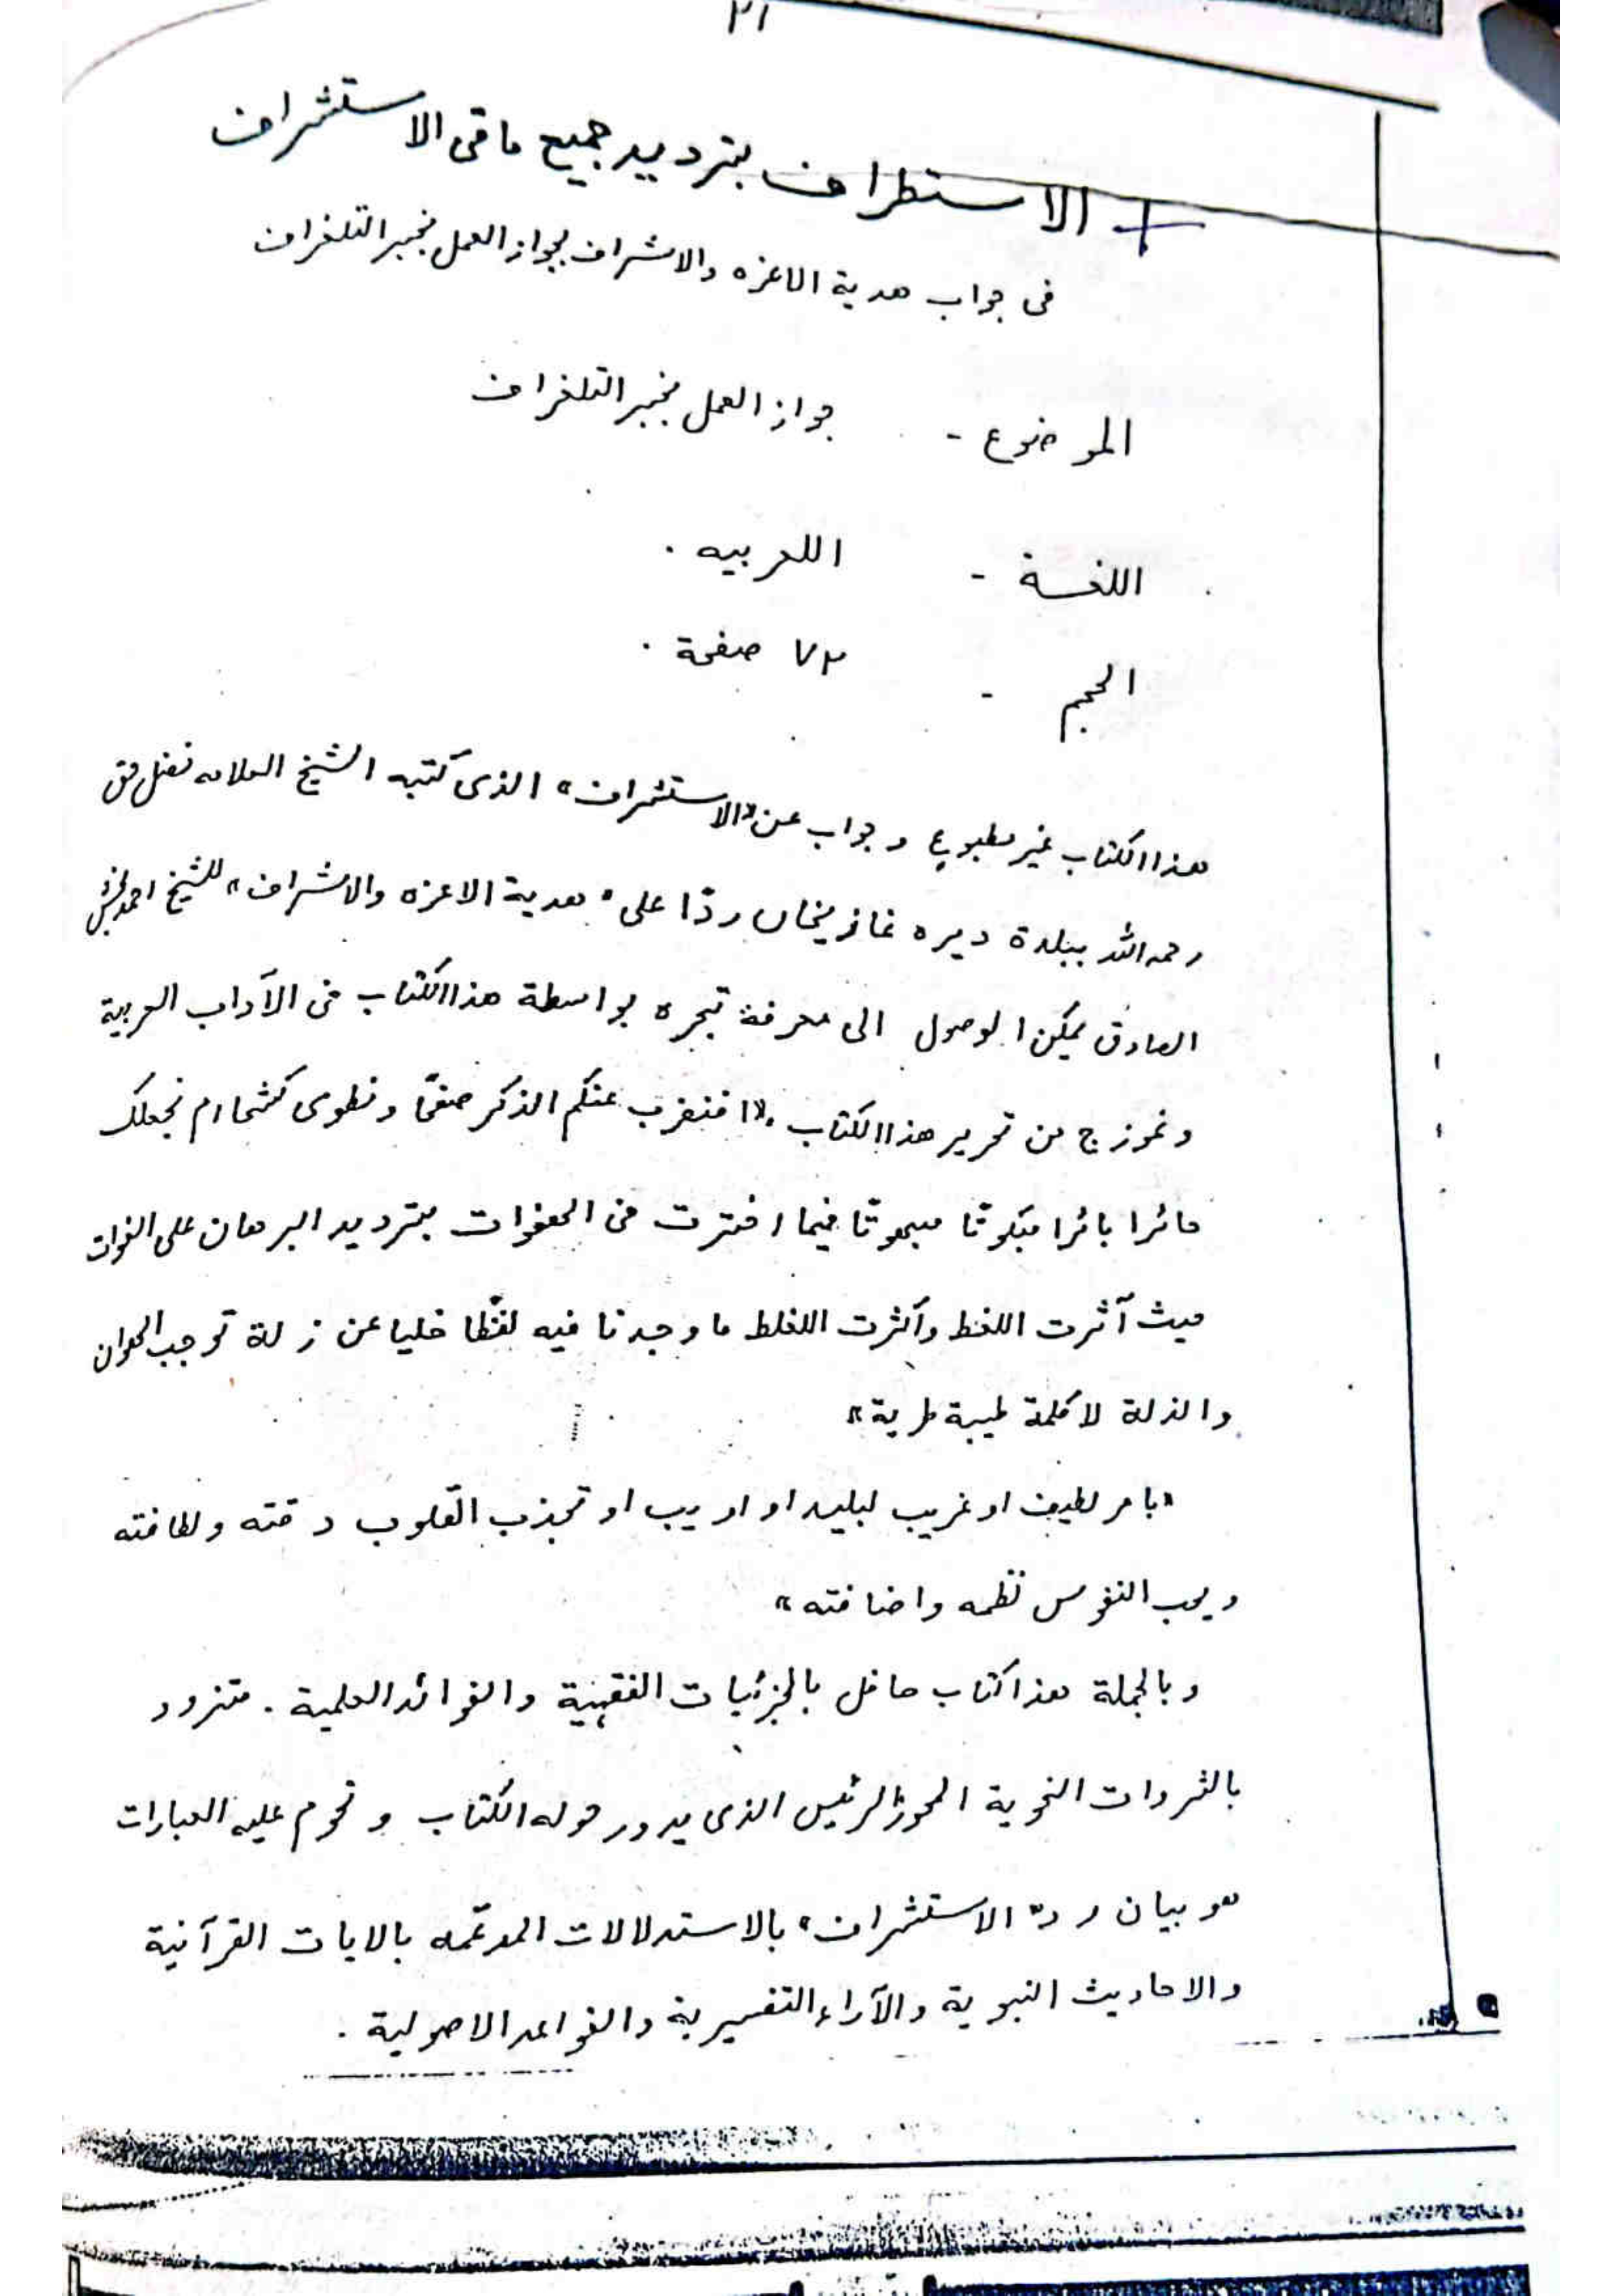 ٢١
الاستطراف بترديد جميع ما فى الاستشراف
فى جواب هدية الاعزه والاشراف لجواز العمل بخبر التلغراف
الموضوع - جواز العمل بخبر التلغراف
اللغة - اللعربيه .
الحجم - ٧٢ صفحة .
هذا الكتاب غير مطبوع وجواب عن "الاستشراف" الذى كتبه الشيخ العلامه فضل حق
رحمه الله ببلدة ديره غازيخان ردّا على "هدية الاعزه والاشراف" للشيخ احمد بخش
الصادق يمكن الوصول الى معرفة تبحره بواسطة هذا الكتاب فى الآداب العربية
ونموزج من تحرير هذا الكتاب . "افنضرب عنكم الذكر صفحًا ونطوى كشحا ام نجعلك
حائرا بائرا مبكوتًا مبهوتًا فيما افترت من الهفوات بترديد البرهان على الفوات
حيث آثرت اللغط وأكثرت اللغلط ما وجدنا فيه لفظًا خليا عن زلة توجب الهوان
والذلة لا كلمة طيبة طرية"
"بامر لطيف او غريب لبليد او اديب او تجذب القلوب دقته ولطافته
ويحب النفوس نظمه واضافته"
وبالجملة هذا كتاب حافل بالجزئيات الفقهية والفوائد العلمية . متزود
بالثروات النحوية المحور الرئيس الذى يدور حوله الكتاب وتحوم عليه العبارات
هو بيان ردّ "الاستشراف" بالاستدلالات المدعّمه بالايات القرآنية
والاحاديث النبوية والآراء التفسيرية والقواعد الاصولية .